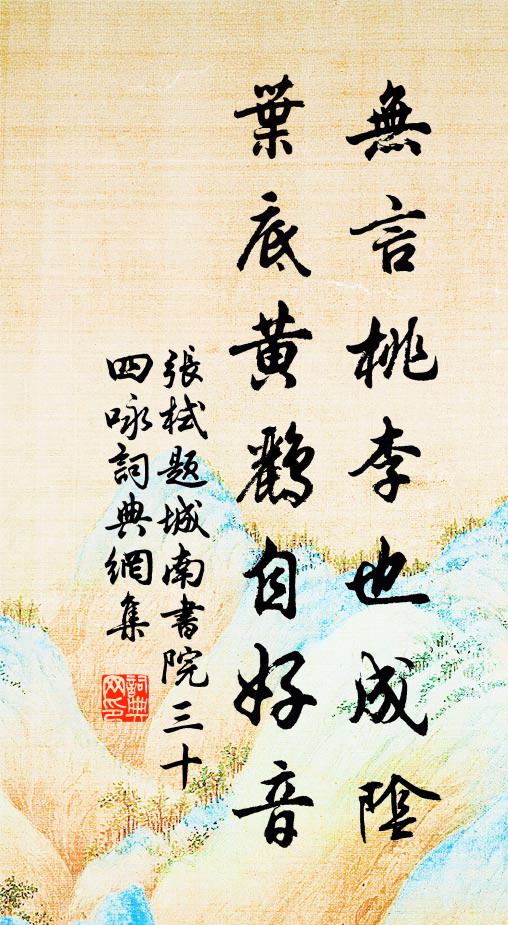 無言桃李也成陰
葉底黃鸝自好音
張栻題城南書院三十
四咏詞典網集
詞典網印